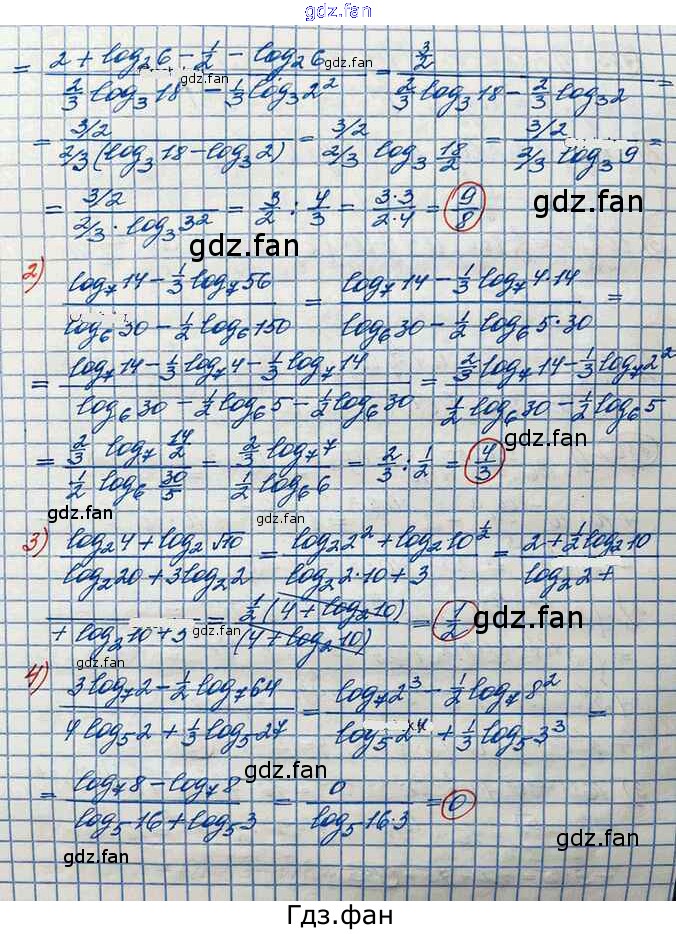 gdz.fan
= (2 + log₂6 − 1/2 − log₂6)/(2/3 log₃18 − 1/3 log₃2²) = (3/2)/(2/3 log₃18 − 2/3 log₃2) =
gdz.fan
gdz.fan
gdz.fan
= (3/2)/(2/3(log₃18 − log₃2)) = (3/2)/(2/3 log₃ 18/2) = (3/2)/(2/3 log₃9) =
= (3/2)/(2/3 · log₃3²) = 3/2 : 4/3 = (3·3)/(2·4) = 9/8
gdz.fan
gdz.fan
2) (log₇14 − 1/3 log₇56)/(log₆30 − 1/2 log₆150) = (log₇14 − 1/3 log₇4·14)/(log₆30 − 1/2 log₆5·30) =
= (log₇14 − 1/3 log₇4 − 1/3 log₇14)/(log₆30 − 1/2 log₆5 − 1/2 log₆30) = (2/3 log₇14 − 1/3 log₇2²)/(1/2 log₆30 − 1/2 log₆5)
gdz.fan
= (2/3 log₇ 14/2)/(1/2 log₆ 30/5) = (2/3 log₇7)/(1/2 log₆6) = 2/3 : 1/2 = 4/3
gdz.fan
gdz.fan
3) (log₂4 + log₂√10)/(log₂20 + 3log₂2) = (log₂2² + log₂10^(1/2))/(log₂2·10 + 3) = (2 + 1/2 log₂10)/(log₂2 +
/(+ log₂10 + 3) = (1/2(4 + log₂10))/(4 + log₂10) = 1/2
gdz.fan
gdz.fan
4) (3log₇2 − 1/2 log₇64)/(4log₅2 + 1/3 log₅27) = (log₇2³ − 1/2 log₇8²)/(log₅2⁴ + 1/3 log₅3³) =
gdz.fan
= (log₇8 − log₇8)/(log₅16 + log₅3) = 0/(log₅16·3) = 0
gdz.fan
gdz.fan
gdz.fan
Гдз.фан